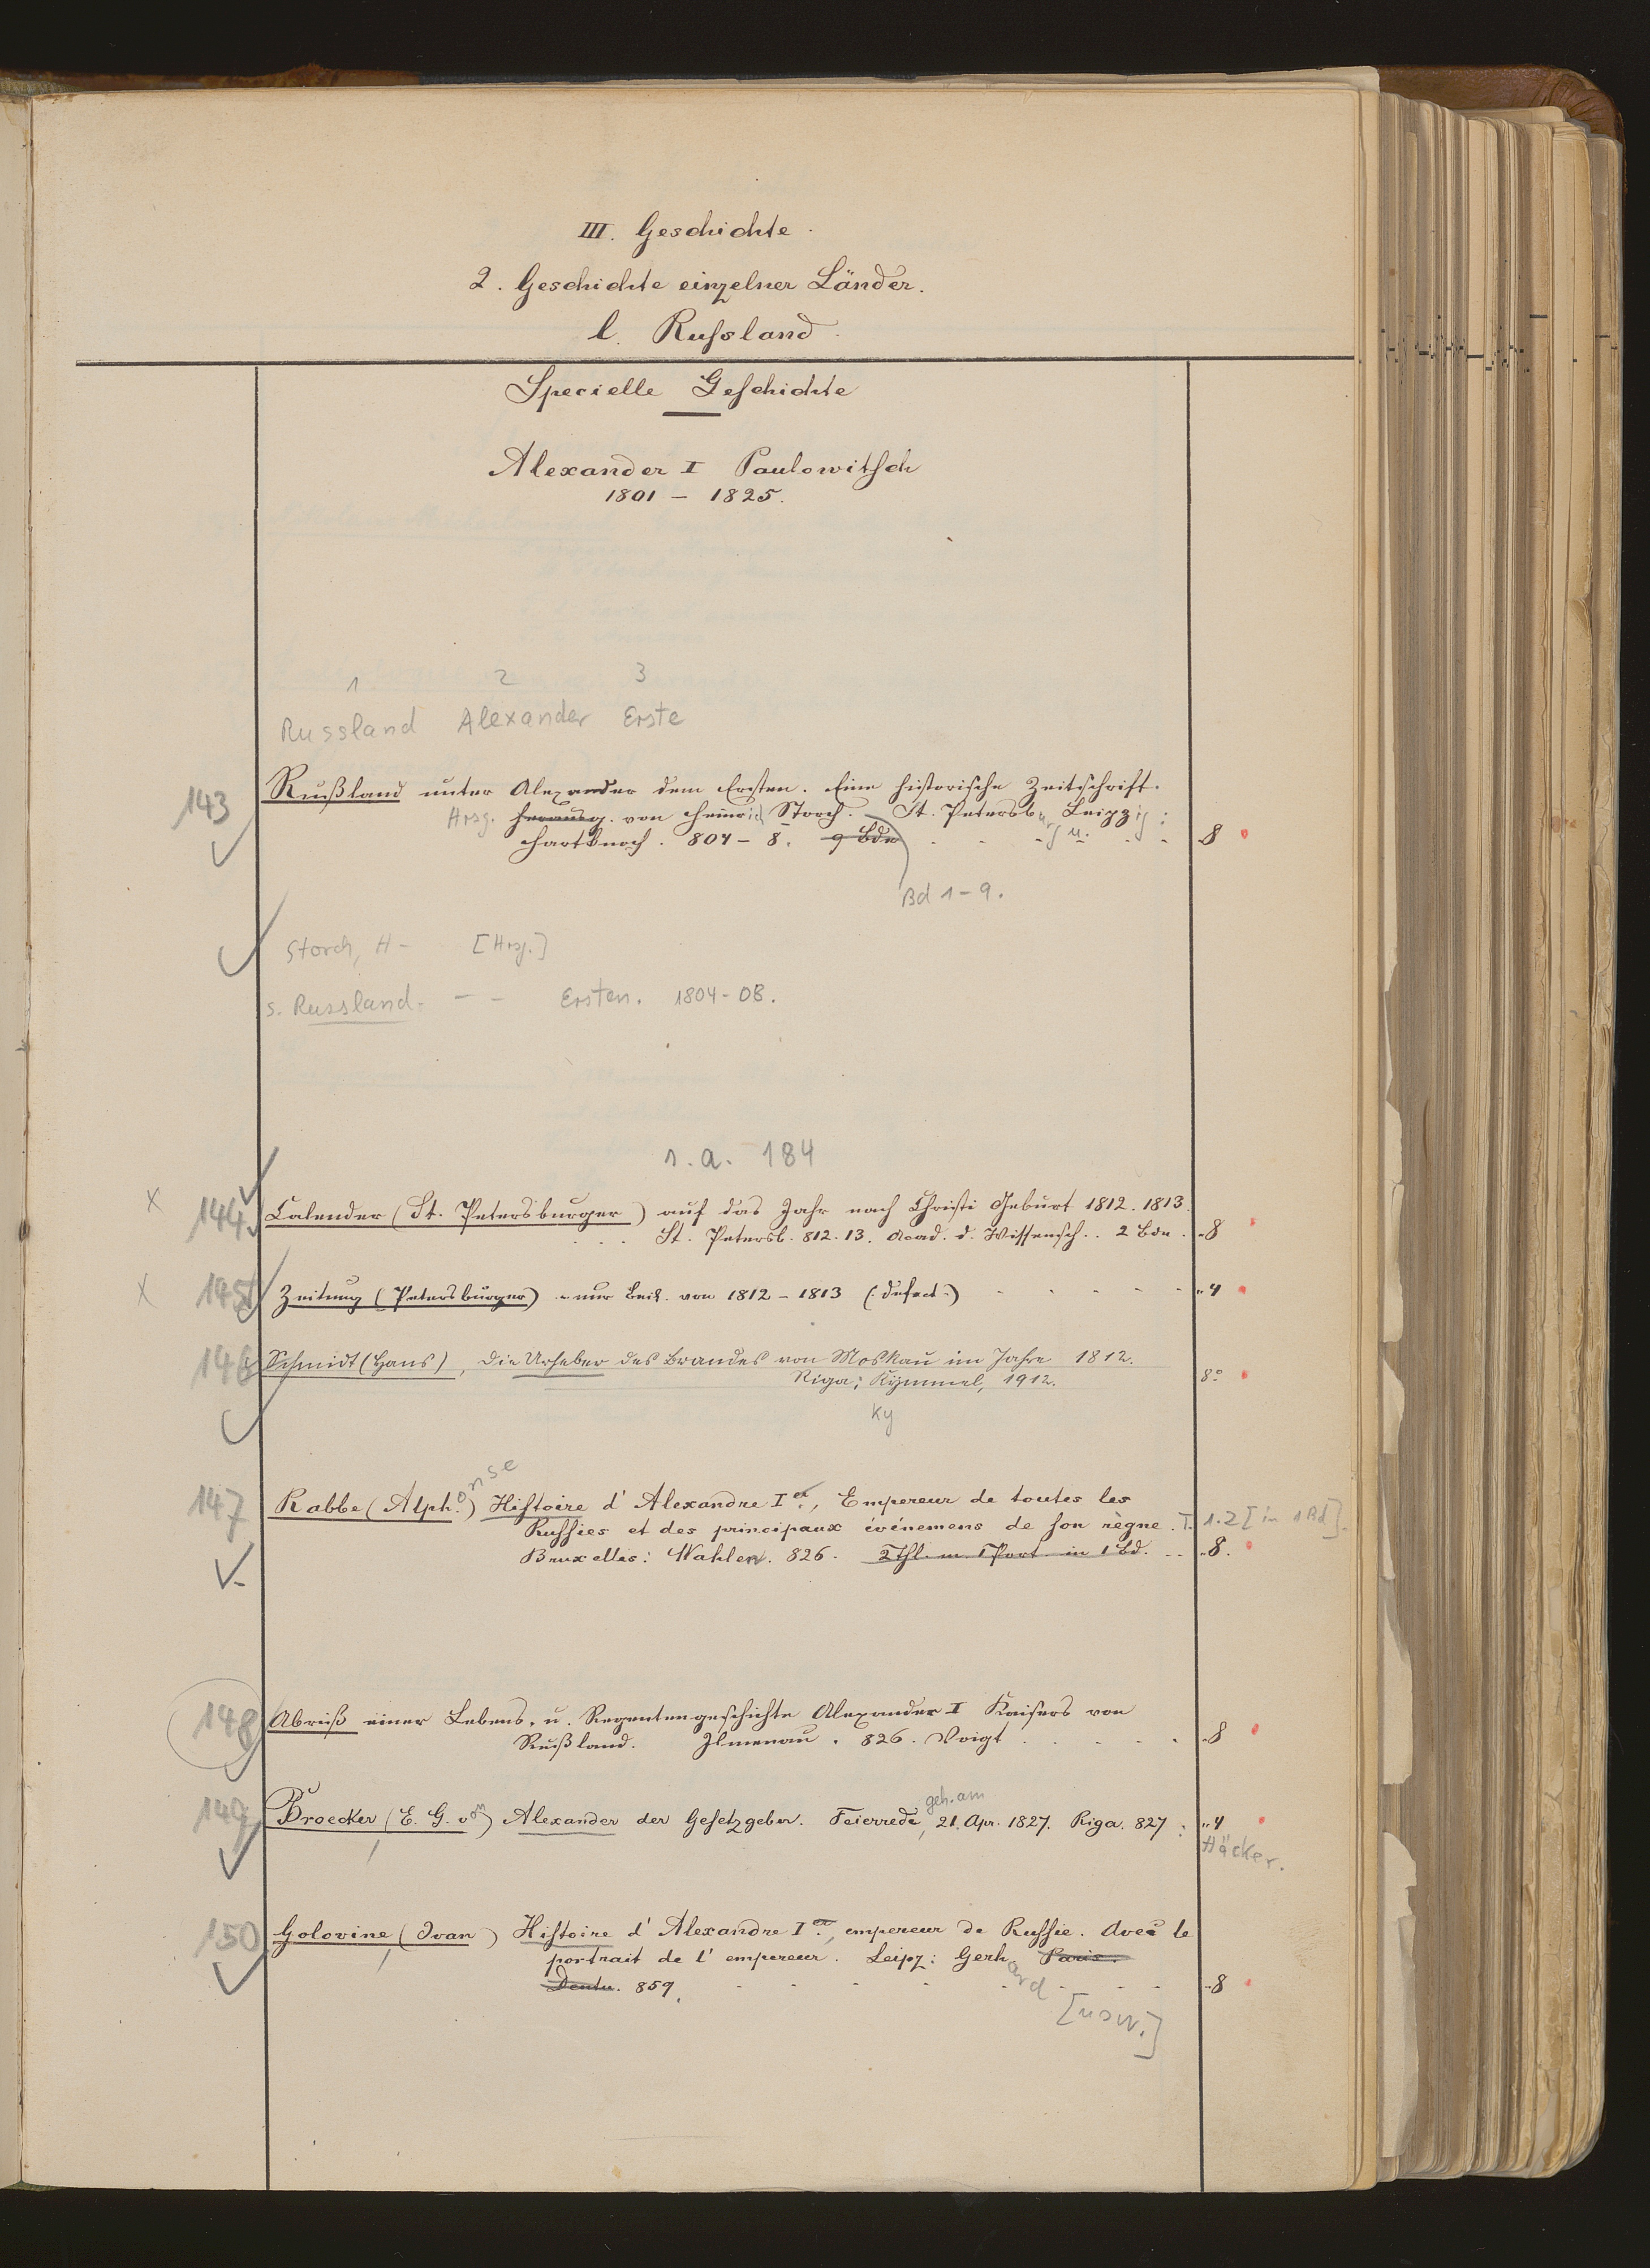 III. Geschichte.
2. Geschichte einzelner Länder.
l. Russland.
Specielle Geschichte
Alexander I Paulowitsch
1801 – 1825.
1 2 3
Russland Alexander Erste
143 Rußland unter Alexander dem Ersten. Eine historische Zeitschrift.
Hrsg. herausg. von Heinrich Storch. St. Petersburg u. Leipzig:
Hartknoch. 804–8. 9 Bde 8
Bd 1–9.
Storch, H– [Hrsg.]
s. Russland – – Ersten. 1804–08.
s.a. 184
x 144 Calender (St. Petersburger) auf das Jahr nach Christi Geburt 1812. 1813.
St. Petersb. 812. 13. Acad. d. Wissensch. 2 Bde. 8
x 145 Zeitung (Petersburger) nur von 1812 – 1813 (: defect :) 4
146 Schmidt (Hans), Die Urheber des Brandes von Moskau im Jahre 1812.
Riga: Kymmel, 1912. 8°
Ky
147 Rabbe (Alphonse) Histoire d'Alexandre I er., Empereur de toutes les
Russies et des principaux événemens de son règne. T. 1.2 [in 1 Bd].
Bruxelles: Wahlen. 826. 2 Thl. m. 1 Port. in 1 Bd. 8.
148 Abriß einer Lebens- u. Regentengeschichte Alexander I Kaisers von
Rußland. Ilmenau. 826. Voigt 8
149 Broecker (E. G. von) Alexander der Gesetzgeber. Feierrede, geh. am 21. Apr. 1827. Riga. 827: 4
Häcker.
150 Golovine (Ivan) Histoire d'Alexandre I er, empereur de Russie. Avec le
portrait de l'empereur. Leipz: Gerhard Paris.
Dentu. 859. 8
[usw.]